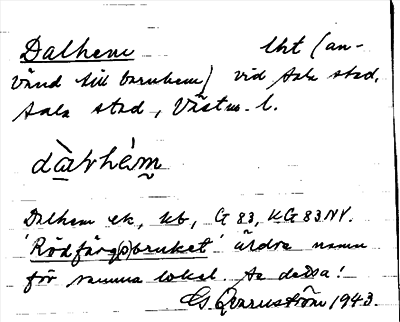 Dalhem lht (an-
vänd till barnhem) vid Sala stad,
Sala stad, Västm. l.
dàlhèm
Dalhem ek, kb, G 83, KG 83 NV.
'Rödfärg(s)bruket' äldre namn
för samma lokal. Se dessa!
1943.